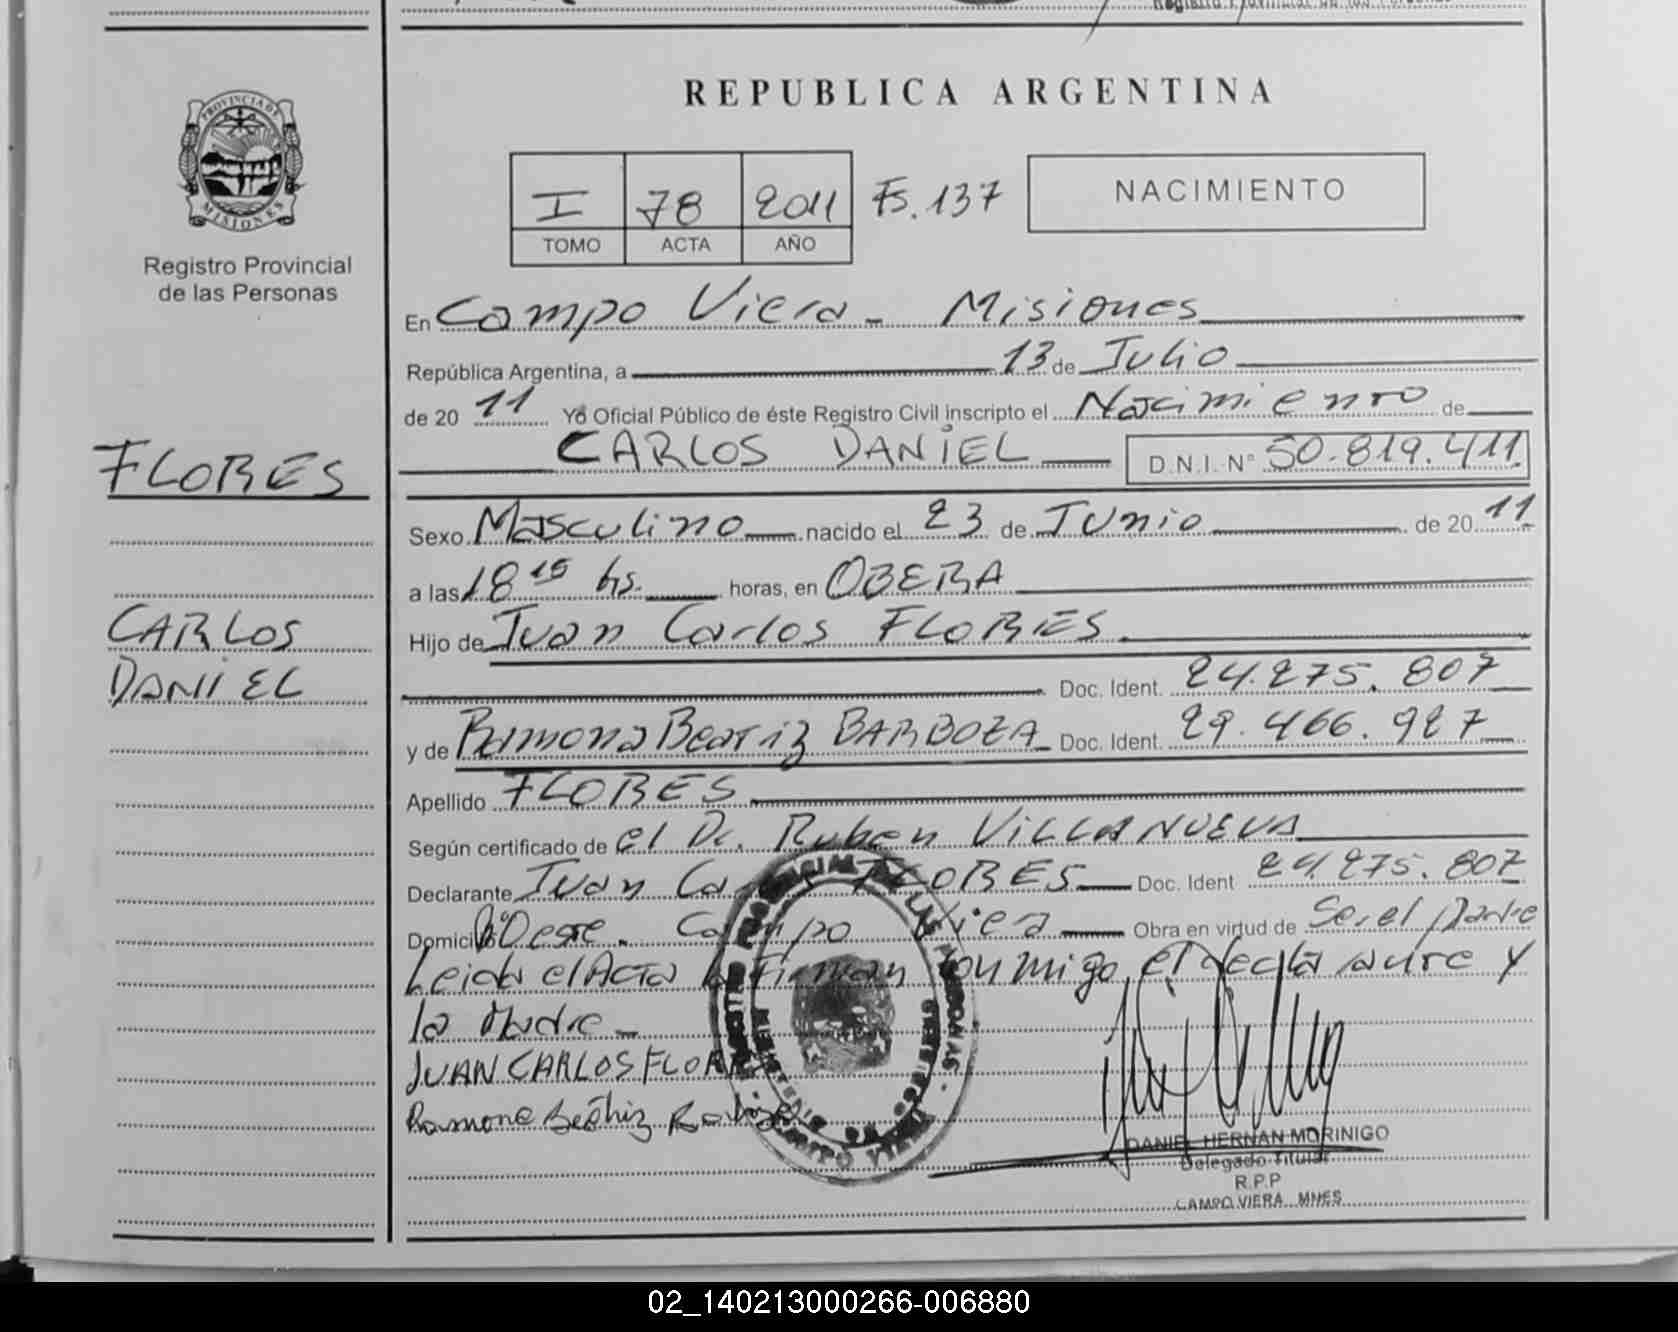 REPUBLICA ARGENTINA
PROVINCIA DE
MISIONES
Registro Provincial
de las Personas
I 78 2011 Fs. 137
TOMO ACTA AÑO
NACIMIENTO
En Campo Viera - Misiones
República Argentina, a 13 de Julio
de 20 11 Yo Oficial Público de éste Registro Civil inscripto el Nacimiento de
FLORES
CARLOS DANIEL D.N.I. Nº 50.819.411
Sexo Masculino nacido el 23 de Junio de 20 11
a las 18 15 hs. horas, en OBERA
CARLOS
DANIEL
Hijo de Juan Carlos FLORES
Doc. Ident. 24.275.807
y de Ramona Beatriz BARBOZA Doc. Ident. 29.466.927
Apellido FLORES
Según certificado de el Dr. Ruben VILLANUEVA
Declarante Juan Carlos FLORES Doc. Ident 24.275.807
Domicilio Bº Oeste. Campo Viera Obra en virtud de Ser el padre
Leida el Acta la Firman conmigo el declarante y
la Madre -
JUAN CARLOS FLORES
Ramona Beatriz
DANIEL HERNAN MORINIGO
Delegado Titular
R.P.P
CAMPO VIERA MNES
02_140213000266-006880